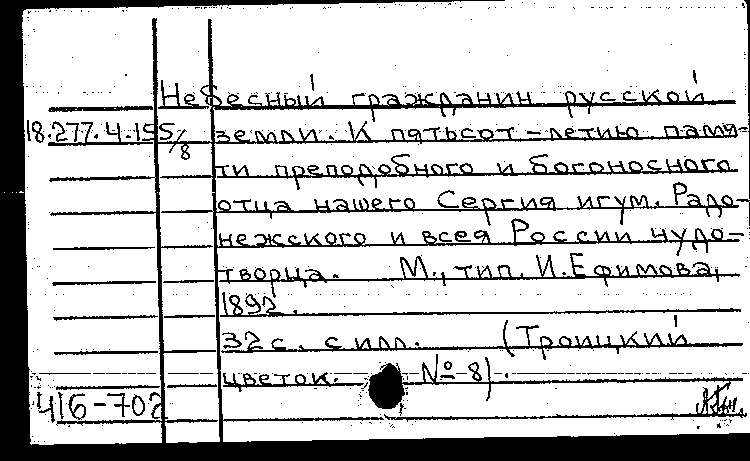 Небесный гражданин русской
18.277.4.155/8 земли. К пятьсот-летию памя-
ти преподобного и богоносного
отца нашего Сергия игум. Радо-
нежского и всея России чудо-
творца. М., тип. И. Ефимова,
1892.
32 с. с илл. (Троицкий
цветок. № 8).
416-702